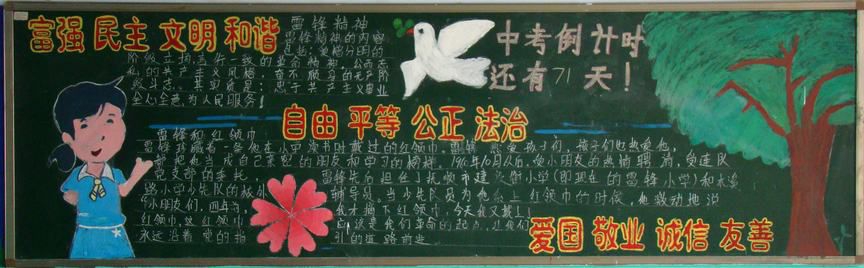 富强 民主 文明 和谐
雷锋精神
雷锋精神的内容
包括：爱憎分明的
阶级立场、言行一致的革命精神、公而忘
私的共产主义风格、奋不顾身的无产阶
级斗志。其实质是：忠于共产主义事业
全心全意为人民服务！
中考倒计时
还有71天！
自由 平等 公正 法治
雷锋和红领巾
雷锋珍藏着一条他在小学读书时戴过的红领巾，
热爱孩子们，孩子们也热爱他，
都把他当成自己亲密的朋友和学习的榜样。1960年10月以后，受小朋友的热情聘请，受连队
党支部的委托，雷锋先后担任了抚顺市建设街小学(即现在的雷锋小学)和本溪
路小学少先队的校外辅导员。当少先队员为他系上红领巾的时候，他激动地说
“小朋友们，四年前，我才摘下红领巾，今天我又戴上
红领巾，这红领巾应该是我们革命的起点，让我们
永远沿着党的指引的道路前进
爱国 敬业 诚信 友善